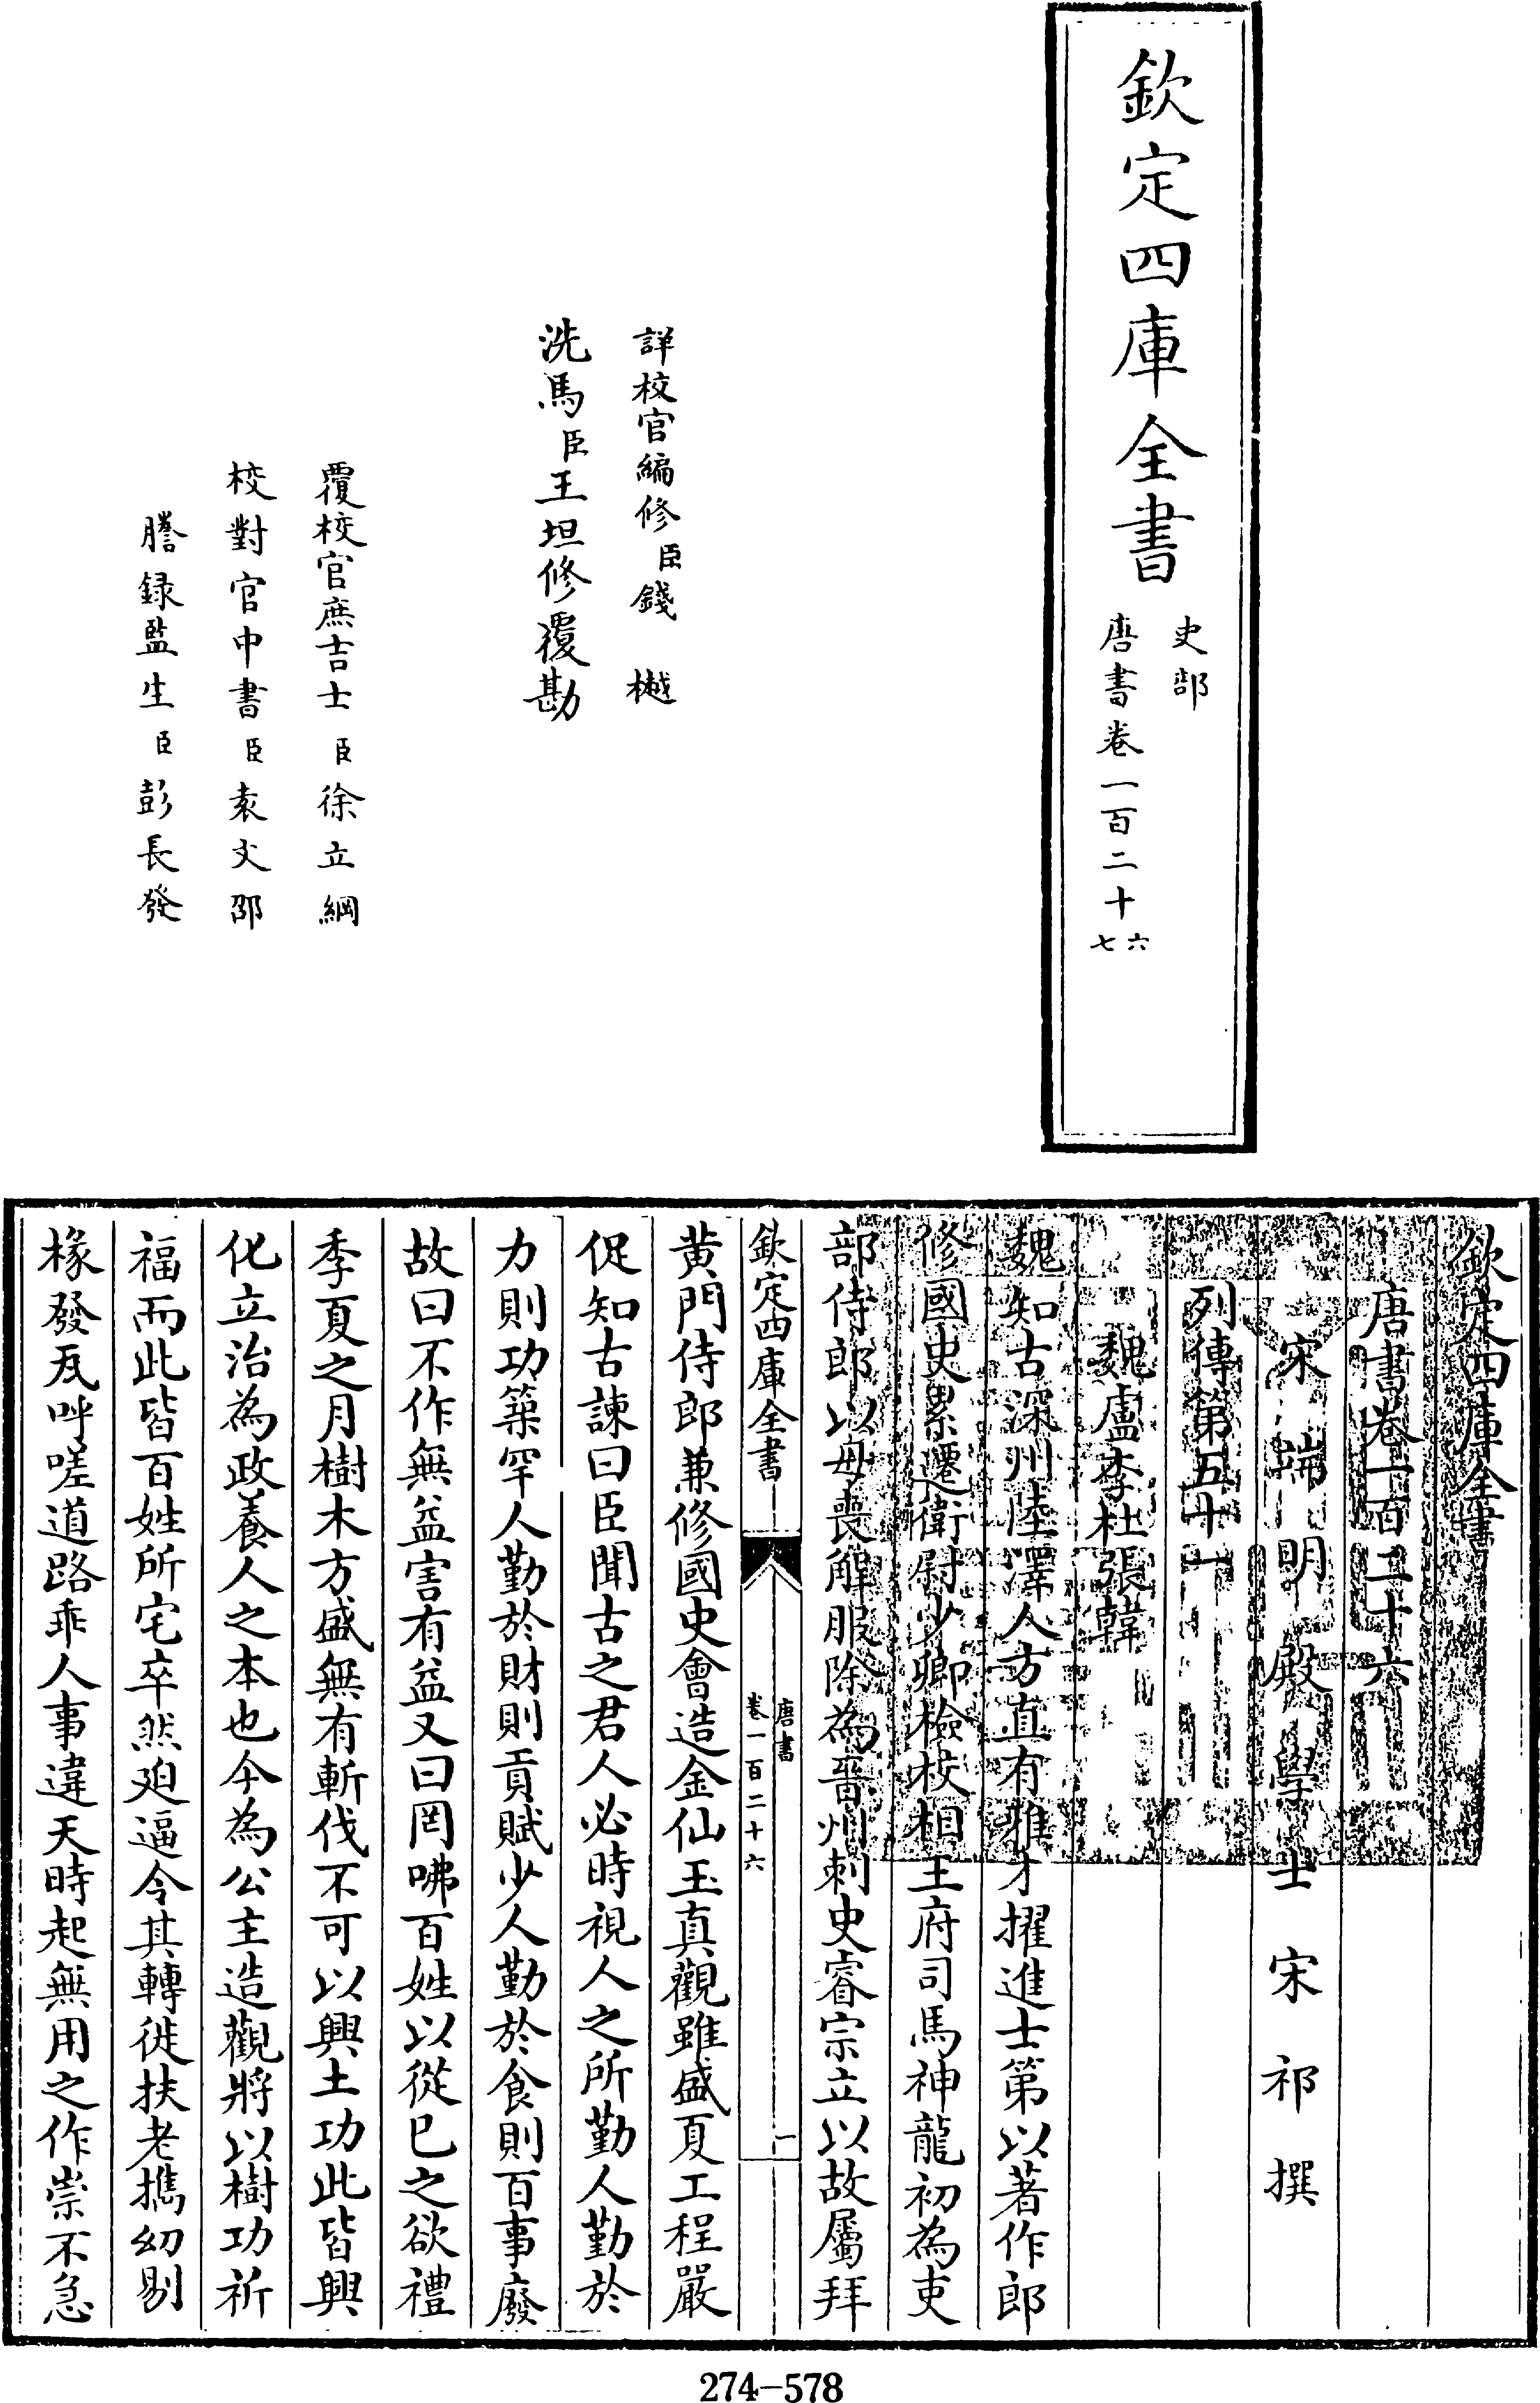 欽定四庫全書
史部
唐書卷一百二十六
七
詳校官編修臣錢樾
洗馬臣王坦修覆勘
覆校官庶吉士臣徐立綱
校對官中書臣袁文邵
謄録監生臣彭長發
欽定四庫全書
唐書卷一百二十六
宋端明殿學士宋祁撰
列傳第五十一
魏盧李杜張韓
魏知古深州陸澤人方直有雅才擢進士第以著作郎
修國史累遷衛尉少卿檢校相王府司馬神龍初為吏
部侍郎以母喪解服除為晉州刺史睿宗立以故屬拜
欽定四庫全書
唐書
卷一百二十六
一
黄門侍郎兼修國史會造金仙玉真觀雖盛夏工程嚴
促知古諫曰臣聞古之君人必時視人之所勤人勤於
力則功築罕人勤於財則貢賦少人勤於食則百事廢
故曰不作無益害有益又曰罔咈百姓以從已之欲禮
季夏之月樹木方盛無有斬伐不可以興土功此皆興
化立治為政養人之本也今為公主造觀將以樹功祈
福而此皆百姓所宅卒然迫逼令其轉徙扶老攜幼剔
椽發瓦呼嗟道路乖人事違天時起無用之作崇不急
274-578